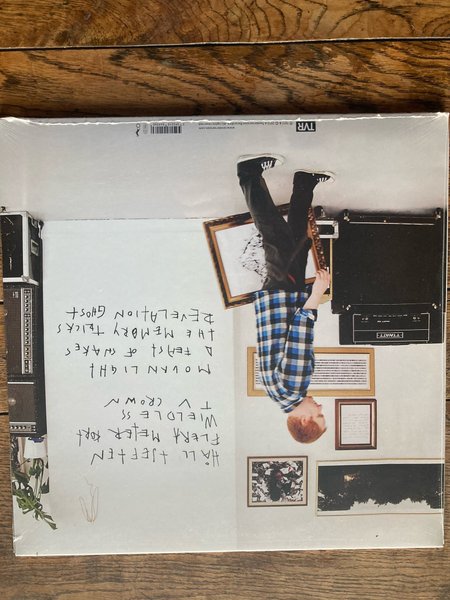 HÅLL TJEFTEN
FLERT METER
WIELDLESS
TV CROWN
MOURN LIGHT
A FEAST OF SNAKES
THE MEMORY TRICKS
REVELATION GHOST
TVR